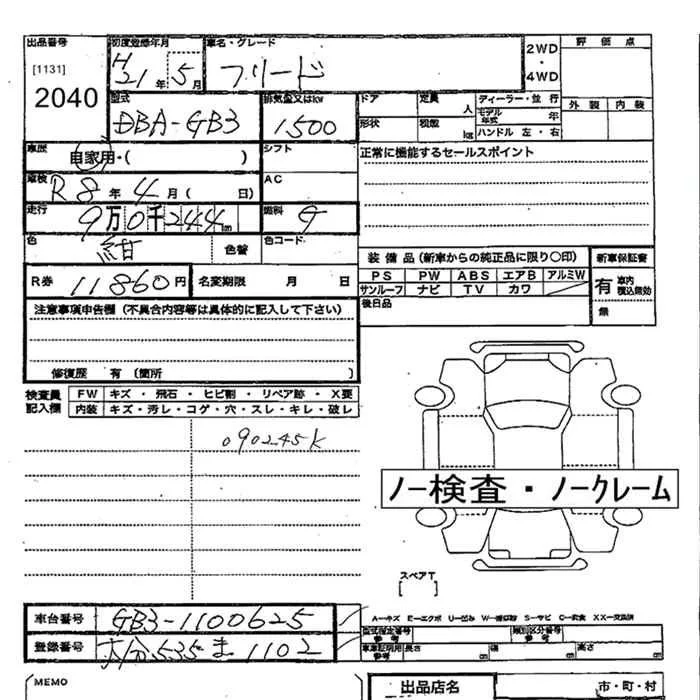 出品番号 初度登録年月 車名・グレード 2WD・4WD 評価点
[1131] H21年5月 フリード
2040 外装 内装
型式 排気量又はkw ドア 定員 人 ディーラー・並行
DBA-GB3 1500 形状 積載 kg モデル年式 年
ハンドル 左・右
車歴 自家用・( ) シフト 正常に機能するセールスポイント
車検 R8年4月( 日) AC
走行 9万0千244km 燃料 G
色 紺 色替 色コード 装備品(新車からの純正品に限り○印) 新車保証書
PS PW ABS エアB アルミW 有 車内積込無効
R券 11860円 名変期限 月 日 サンルーフ ナビ TV カワ
後日品 無
注意事項申告欄(不具合内容等は具体的に記入して下さい)
修復歴 有(箇所 )
検査員記入欄 FW キズ・飛石・ヒビ割・リペア跡・X要
内装 キズ・汚レ・コゲ・穴・スレ・キレ・破レ
090245K
ノー検査・ノークレーム
スペアT
[ ]
車台番号 GB3-1100625 A-キズ E-エクボ U-凹み S-サビ C-腐食 XX-交換済
型式指定番号参考 類別区分番号参考
登録番号 大分535ま1102 車庫証明用参考 長さ cm 幅 cm 高さ cm
[MEMO 出品店名 市・町・村